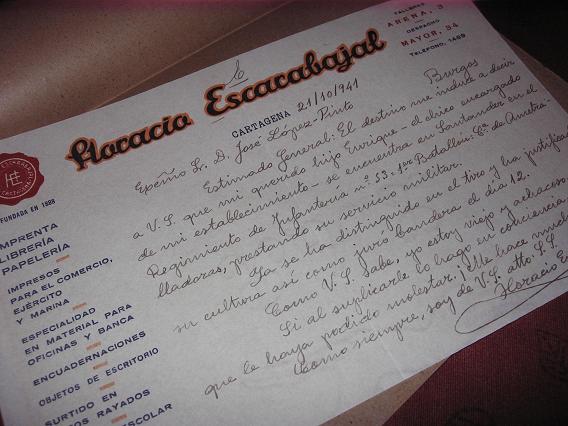 TALLERES
ARENA, 3
DESPACHO
MAYOR, 34
TELÉFONO, 1469
Horacio Escarabajal
CARTAGENA 21/10/1941
FUNDADA EN 1898
IMPRENTA
LIBRERÍA
PAPELERÍA
IMPRESOS
PARA EL COMERCIO,
EJÉRCITO
Y MARINA
ESPECIALIDAD
EN MATERIAL PARA
OFICINAS Y BANCA
ENCUADERNACIONES
OBJETOS DE ESCRITORIO
SURTIDO EN
RAYADOS
ESCOLAR
Excmo Sr. D. José López-Pinto
Burgos
Estimado General: El destino me induce a decir
a V.S. que mi querido hijo Enrique - el chico encargado
de mi establecimiento - se encuentra en Santander en el
Regimiento de Infantería nº 53 - 1er Batallón: Cª de Ametra-
lladoras, prestando su servicio militar.
Ya se ha distinguido en el tiro y ha justificado
su cultura así como juró bandera el día 12.
Como V.S. sabe, yo estoy viejo y achacoso.
Si al suplicarle lo hago en conciencia
que le haya podido molestar; ¡Me hace mucha
Como siempre, soy de V.S. atto. S.S.
Horacio